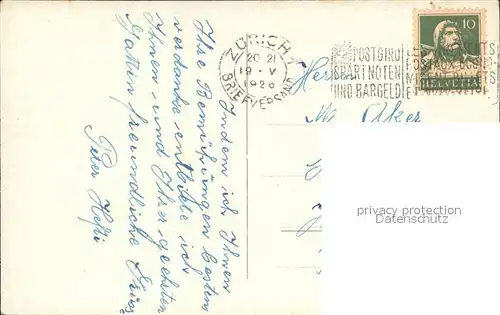 Indem ich Ihnen
Ihre Bemühungen bestens
verdanke entbiete ich
Ihnen und Ihrer geehrten
Gattin freundliche Grüsse
Peter Hefti
ZÜRICH 1
20 21
19·V
1926
BRIEFVERSAND
POSTGIRO
SPART NOTEN
UND BARGELD
10
HELVETIA
Herrn
Aker
privacy protection
Datenschutz